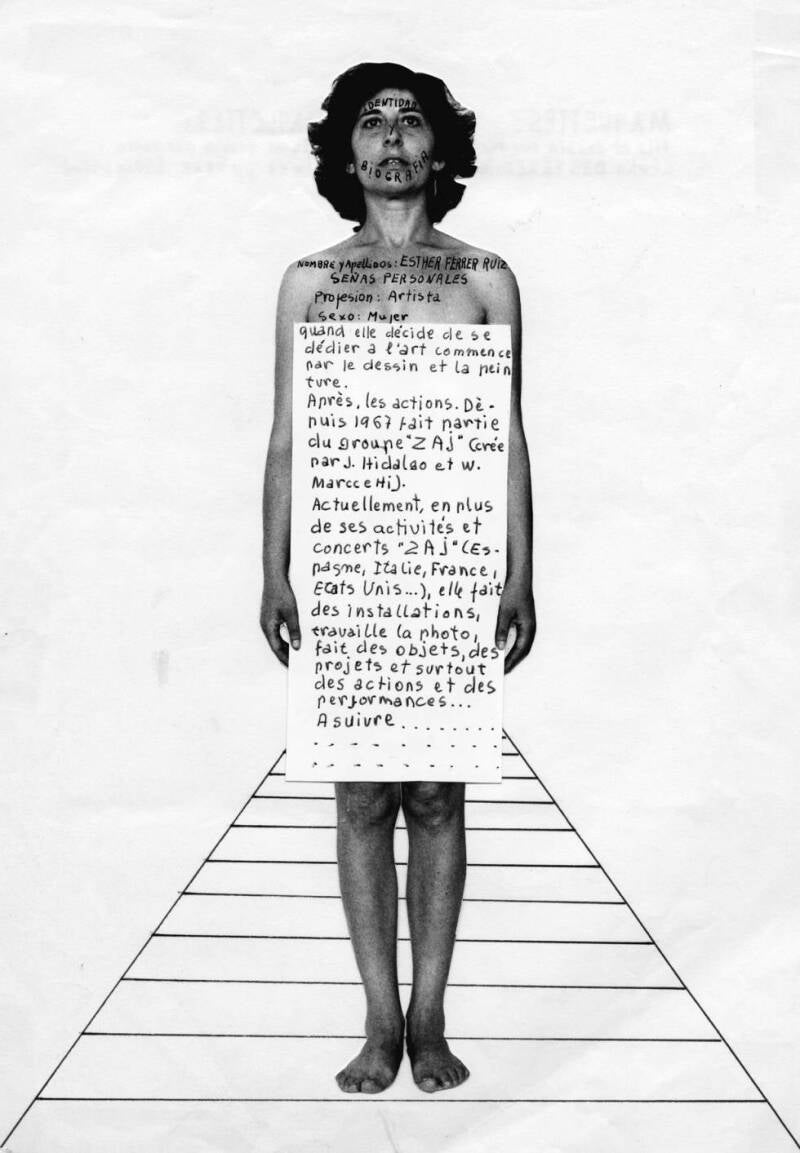 IDENTIDAD
BIOGRAFIA
NOMBRE y Apellidos: ESTHER FERRER RUIZ
SEÑAS PERSONALES
Profesion: Artista
Sexo: Mujer
quand elle décide de se
dédier a l'art commence
par le dessin et la pein
ture.
Après, les actions. Dè-
puis 1967 fait partie
du groupe "ZAJ" (crée
par J. Hidalgo et W.
MarcceHi).
Actuellement, en plus
de ses activités et
concerts "ZAJ" (Es-
pagne, Italie, France,
Etats Unis...), elle fait
des installations,
travaille la photo,
fait des objets, des
projets et surtout
des actions et des
performances...
A suivre........